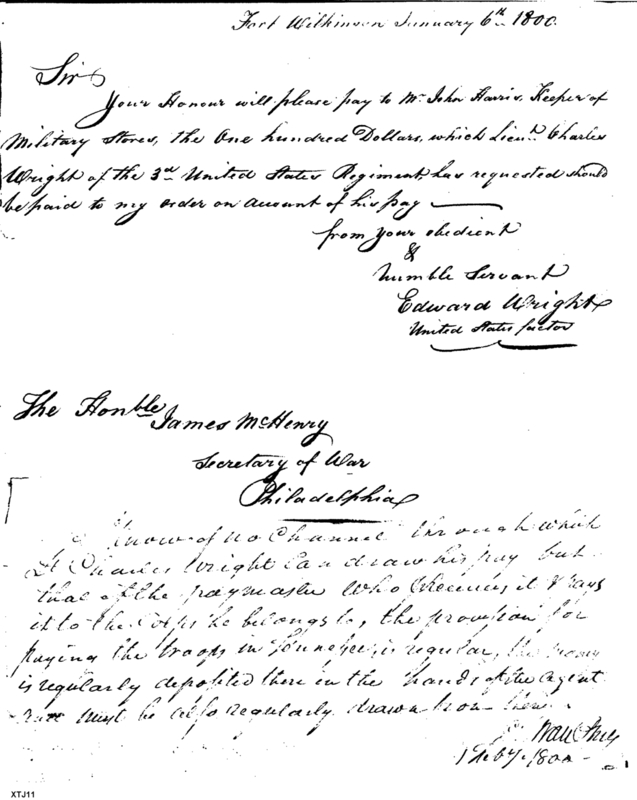 Fort Wilkinson January 6th 1800.
Sir
Your Honour will please pay to Mr. John Harris, Keeper of
Military Stores, the One hundred Dollars, which Lieut. Charles
Wright of the 3rd United States Regiment, has requested should
be paid to my order on account of his pay
from your obedient
&
humble Servant
Edward Wright
United States factor
The Honble James McHenry
Secretary of War
Philadelphia
know of no Channel through which
Lt Charles Wright can draw his pay but
that of the paymaster who receives it & pays
it to the Corps he belongs to, the provision for
paying the troops in Tennessee, is regular, the money
is regularly deposited there in the hands of the agent
must be also regularly drawn from there.
1 Feby. 1800
XTJ11